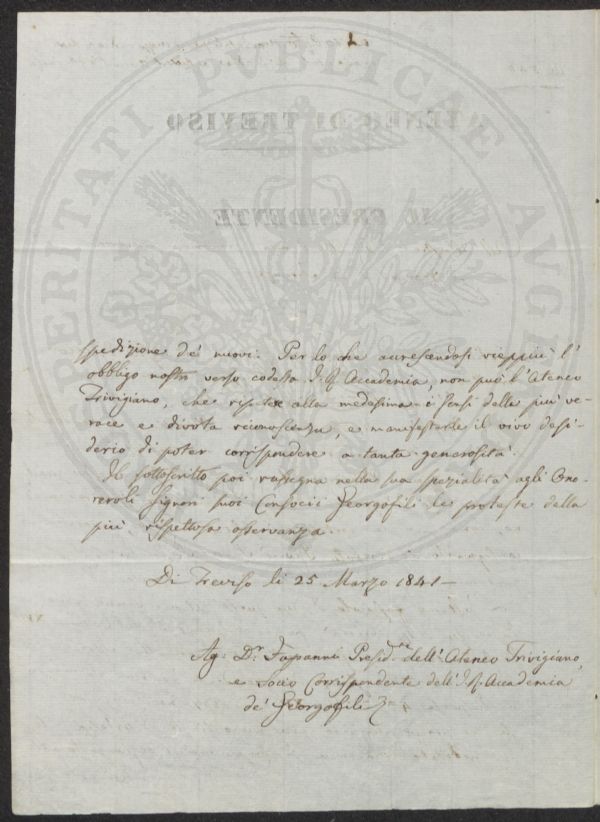 PROSPERITATI PUBLICAE AUGENDAE
ATENEO DI TREVISO
IL PRESIDENTE
spedizione de' nuovi. Per lo che accrescendosi vieppiù l'
obbligo nostro verso codesta I. R. Accademia, non può l'Ateneo
Trivigiano, che ripetere alla medesima i sensi della più ve-
race e divota riconoscenza, e manifestarle il vivo desi-
derio di poter corrispondere a tanta generosità.
Il sottoscritto poi rassegna nella sua spezialità agli Ono-
revoli Signori suoi Consocii Georgofili le proteste della
più rispettosa osservanza.
Di Treviso li 25 Marzo 1841 –
Ag. Dr. Fapanni Presid.te dell'Ateneo Trivigiano,
e Socio Corrispondente dell'I. R. Accademia
de' Georgofili